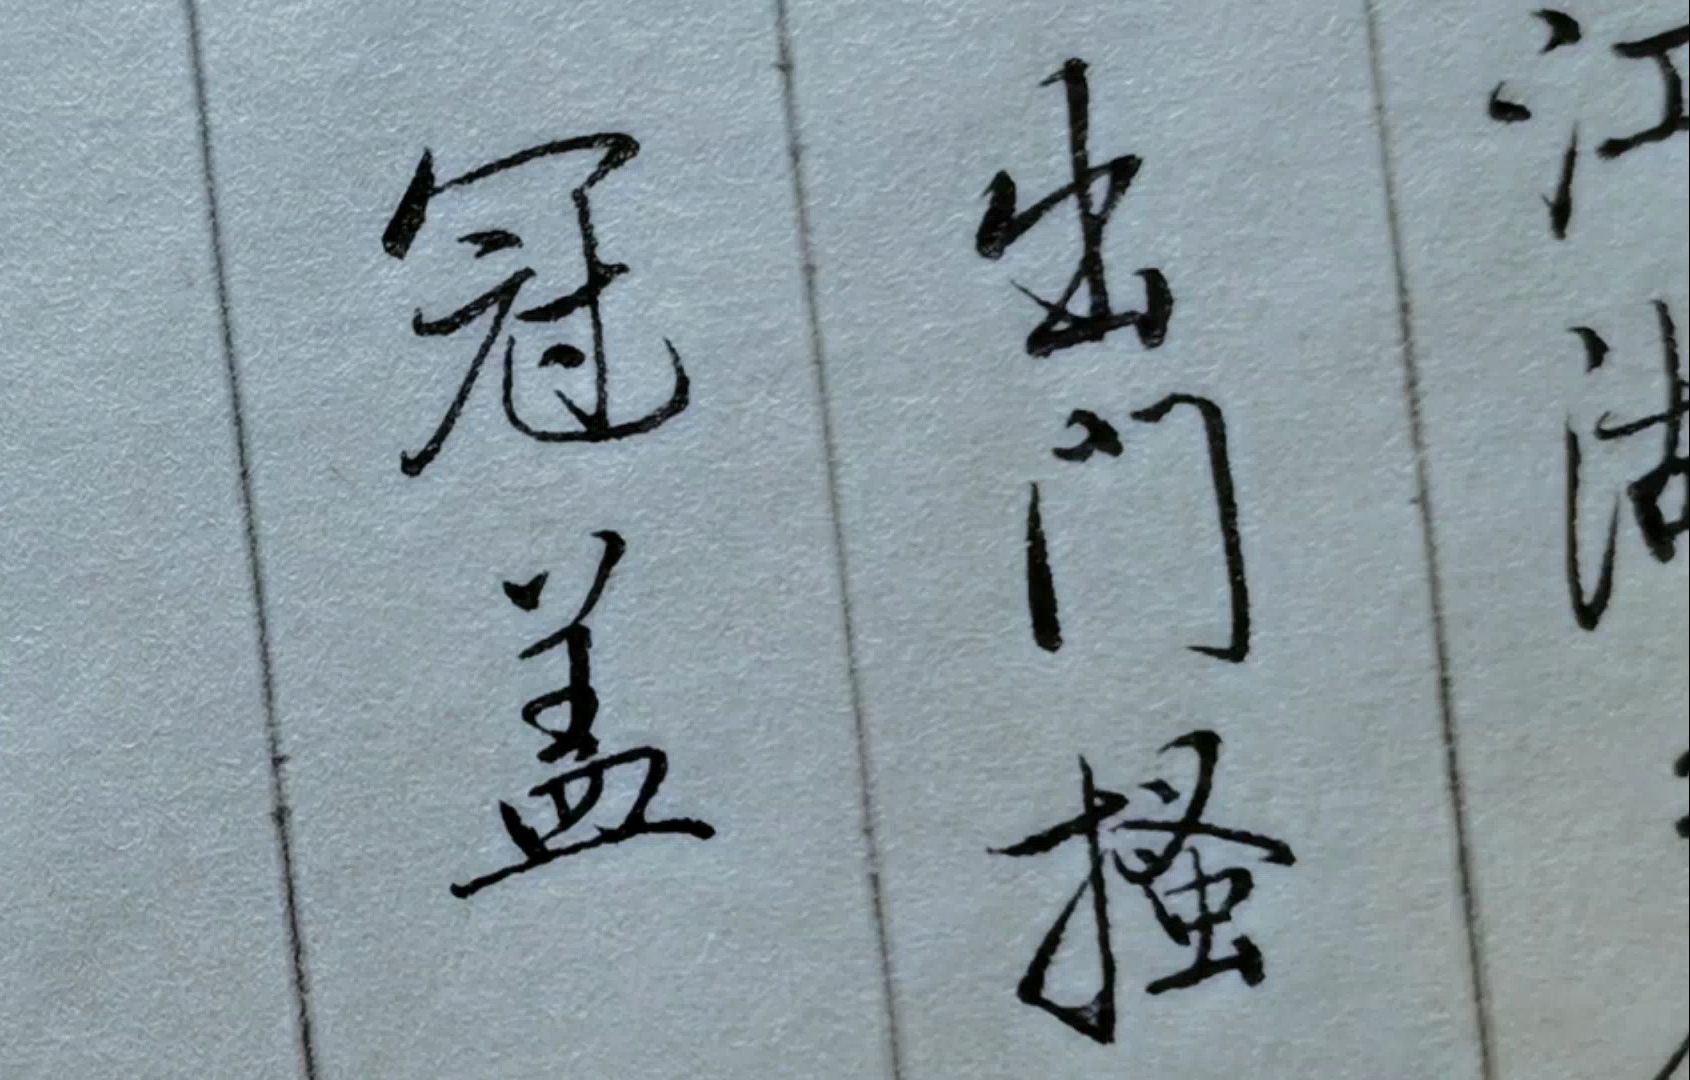 江湖
出门搔
冠盖